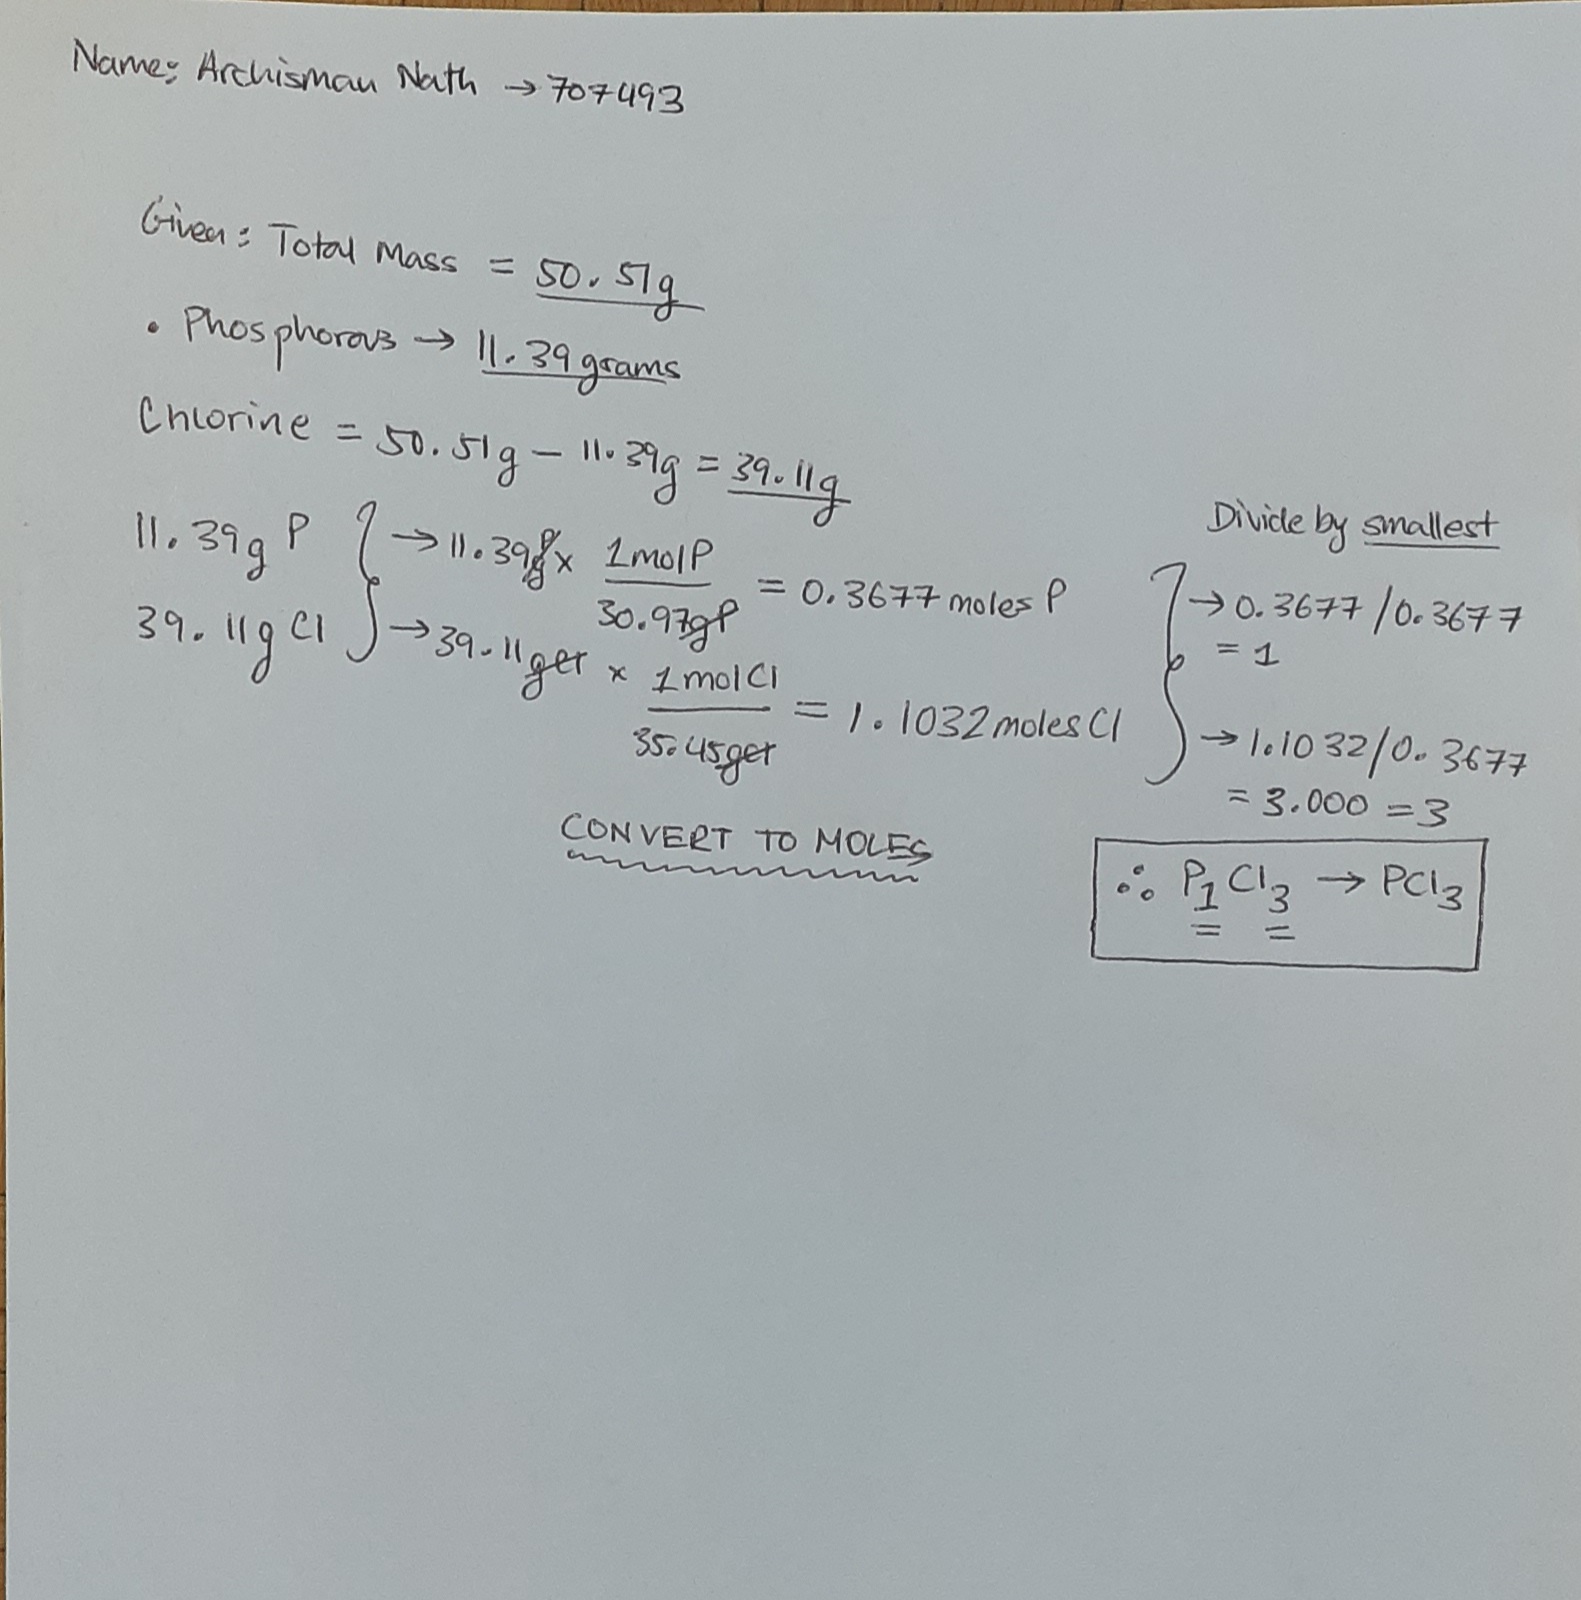 Name: Archisman Nath → 707493
Given: Total Mass = 50.51g
• Phosphorous → 11.39 grams
Chlorine = 50.51g − 11.39g = 39.11g
11.39g P → 11.39g P x 1 mol P / 30.97g P = 0.3677 moles P
39.11g Cl → 39.11g Cl x 1 mol Cl / 35.45g Cl = 1.1032 moles Cl
CONVERT TO MOLES
Divide by smallest
→ 0.3677/0.3677
= 1
→ 1.1032/0.3677
= 3.000 = 3
∴ P1Cl3 → PCl3